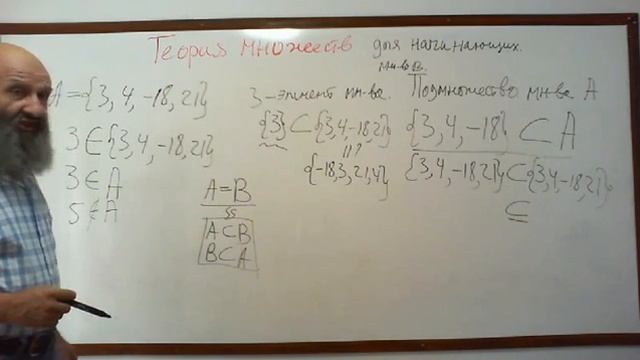 Теория множеств для начинающих.
мн-во
A={3, 4, -18, 21}
3 - элемент мн-ва. Подмножество мн-ва A
3∈{3, 4, -18, 21}
{3}⊂{3, 4, -18, 21}
{3, 4, -18}⊂A
3∈A
{-18, 3, 21, 4}
{3, 4, -18, 21}⊂{3, 4, -18, 21}
5∉A
A=B
⊆
A⊂B
B⊂A